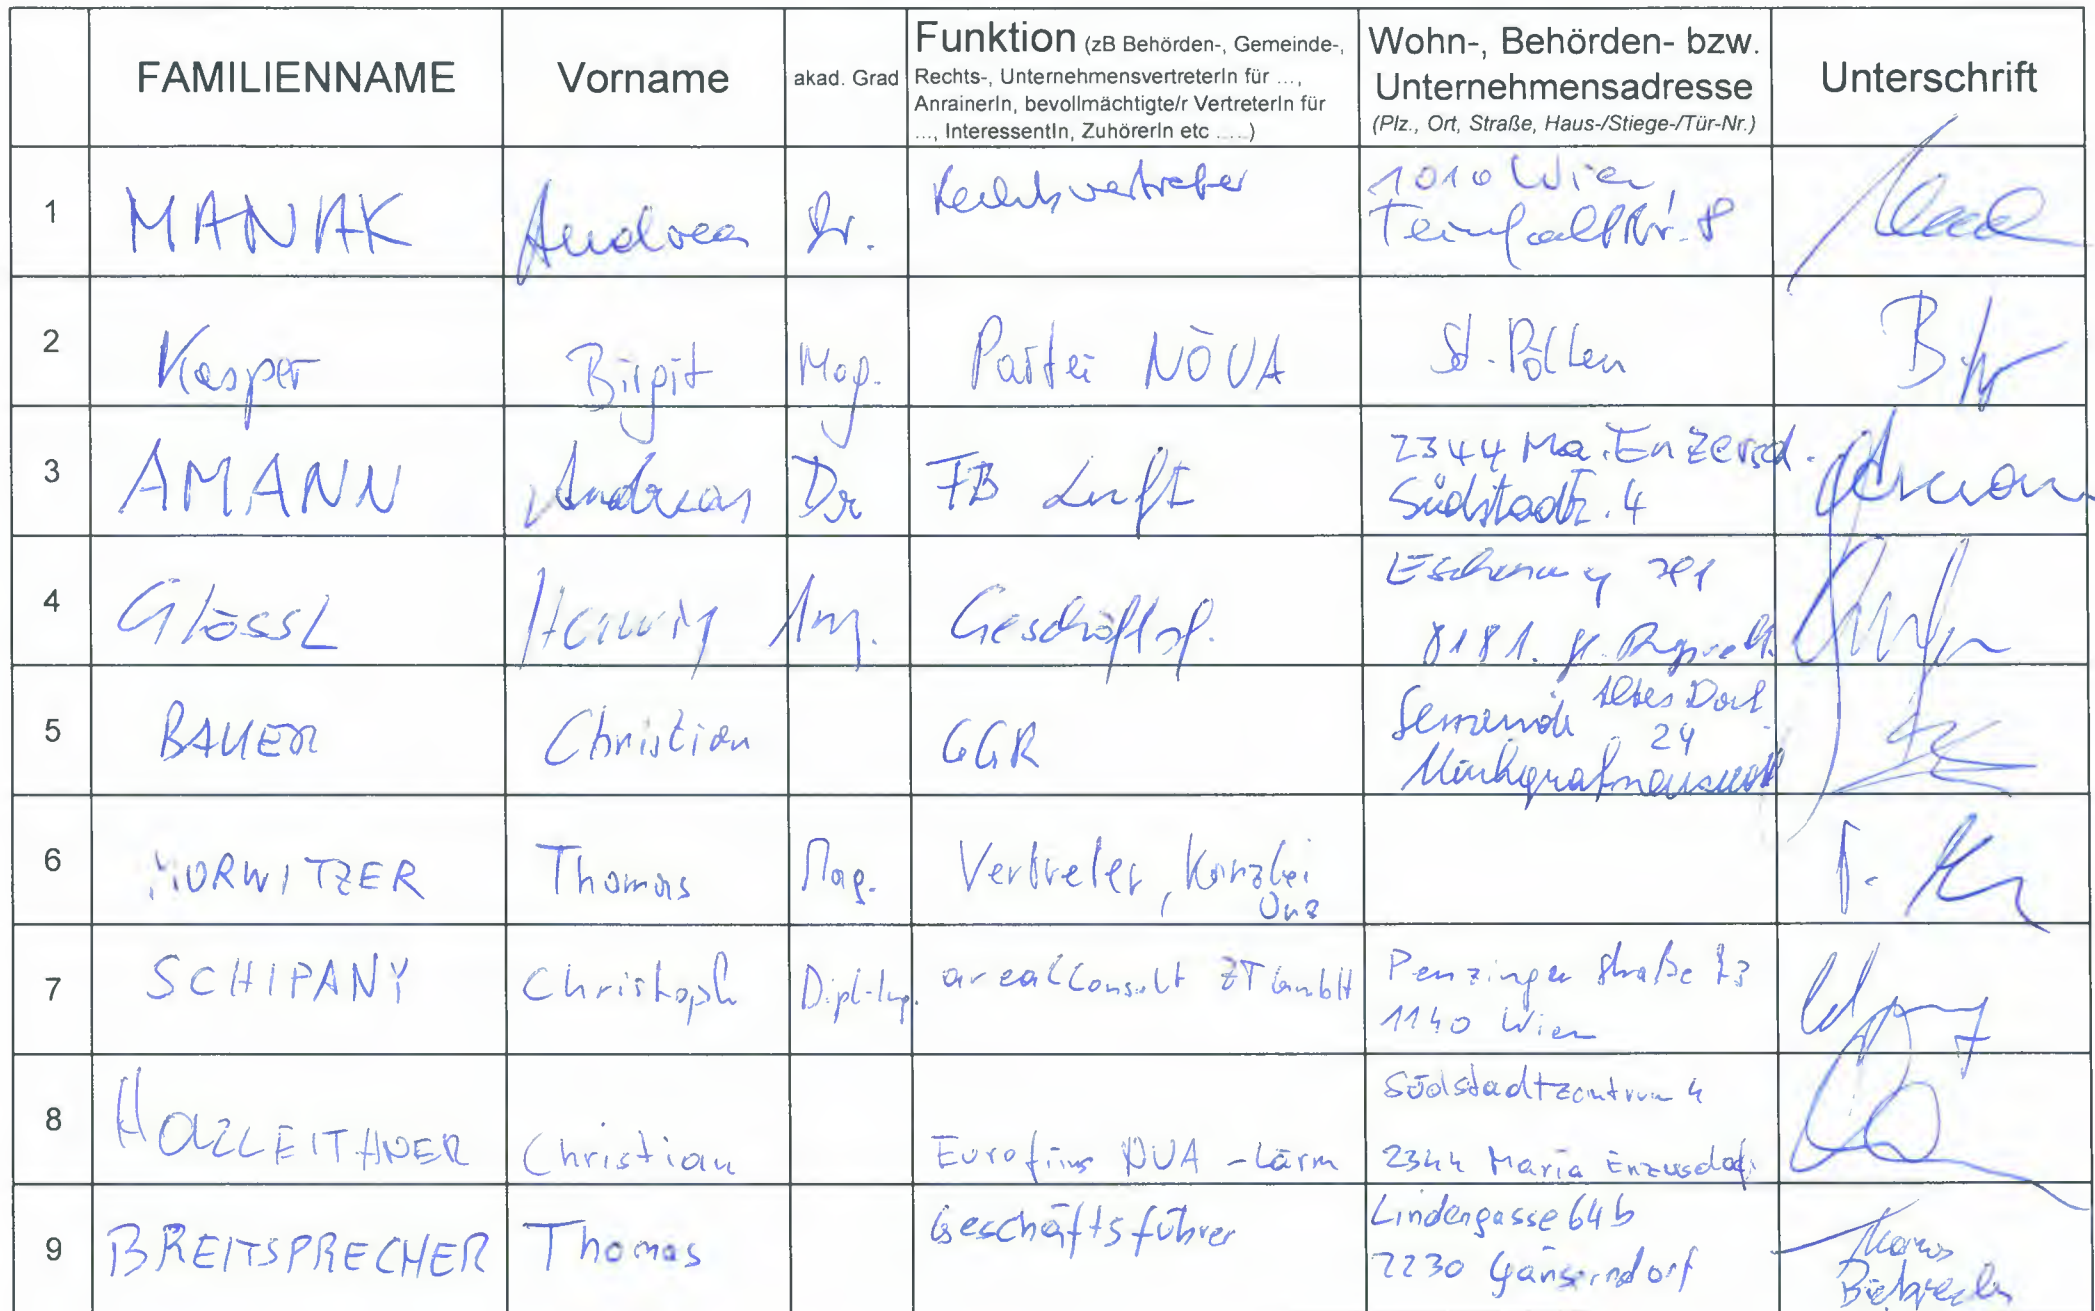 FAMILIENNAME
Vorname
akad. Grad
Funktion (zB Behörden-, Gemeinde-,
Rechts-, UnternehmensvertreterIn für ...,
AnrainerIn, bevollmächtigte/r VertreterIn für
..., InteressentIn, ZuhörerIn etc .....)
Wohn-, Behörden- bzw.
Unternehmensadresse
(Plz., Ort, Straße, Haus-/Stiege-/Tür-Nr.)
Unterschrift
1
MANAK
Andrea
Dr.
Rechtsvertreter
1010 Wien,
Teinfaltstr. 8
2
Kasper
Birgit
Mag.
Partei NÖUA
St. Pölten
3
AMANN
Andreas
Dr
FB Luft
2344 Ma. Enzersd.
Südstadtz. 4
4
GlössL
Herwig
Ing.
Geschäftsf.
8181 St. Ruprecht
5
BAUER
Christian
GGR
Gemeinde Altes Dorf
24
Markgrafneusiedl
6
HORWITZER
Thomas
Mag.
Vertreter, Kanzlei
Onz
7
SCHIPANY
Christoph
Dipl-Ing.
arealConsult ZT GmbH
Penzinger Straße
1140 Wien
8
HOLZLEITHNER
Christian
Eurofins NUA - Lärm
Südstadtzentrum 4
2344 Maria Enzersdorf
9
BREITSPRECHER
Thomas
Geschäftsführer
Lindengasse 64b
2230 Gänserndorf
Thomas
Breitsprecher